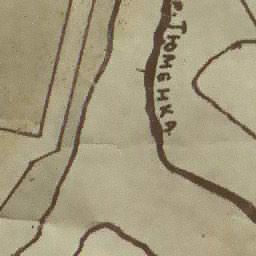 р. Тюменка